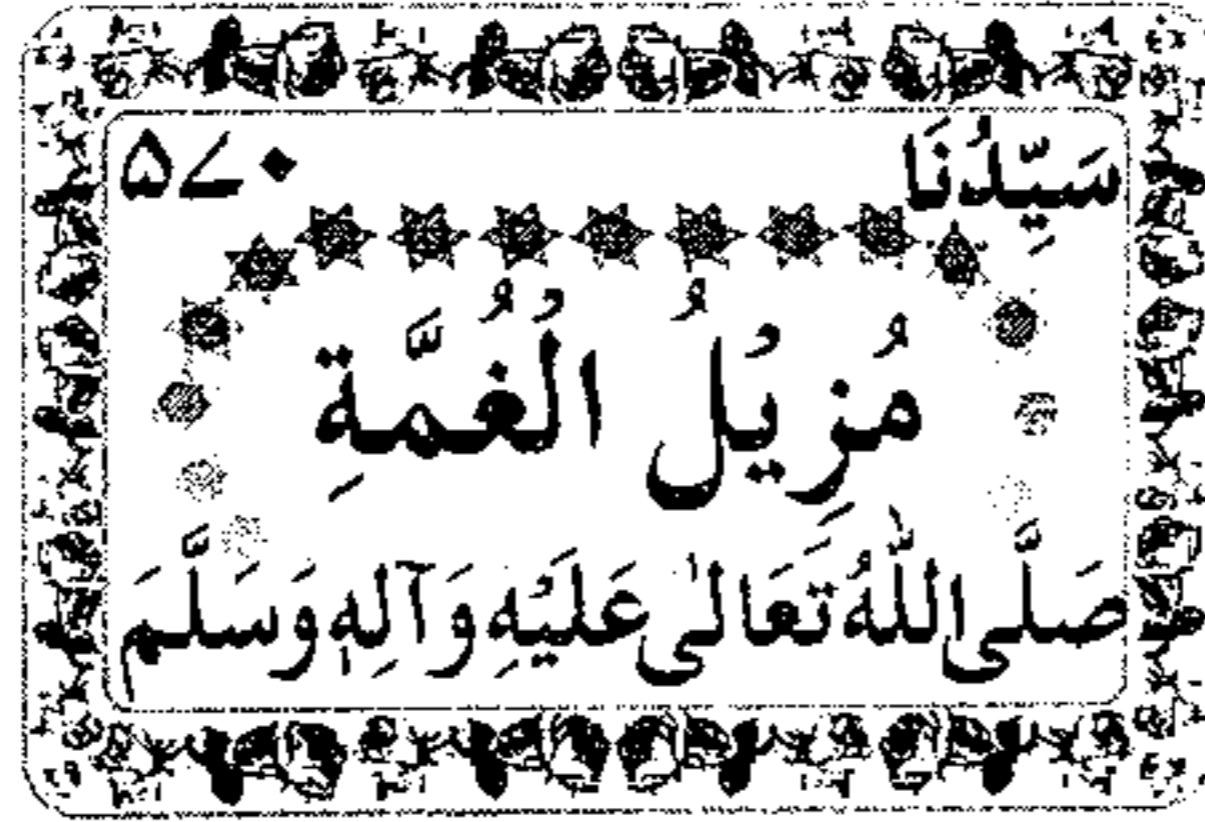 سَيِّدُنَا ۵۷۰
مُزِيْلُ الْغُمَّةِ
صَلَّى اللّٰهُ تَعَالٰى عَلَيْهِ وَآلِهٖ وَسَلَّمَ